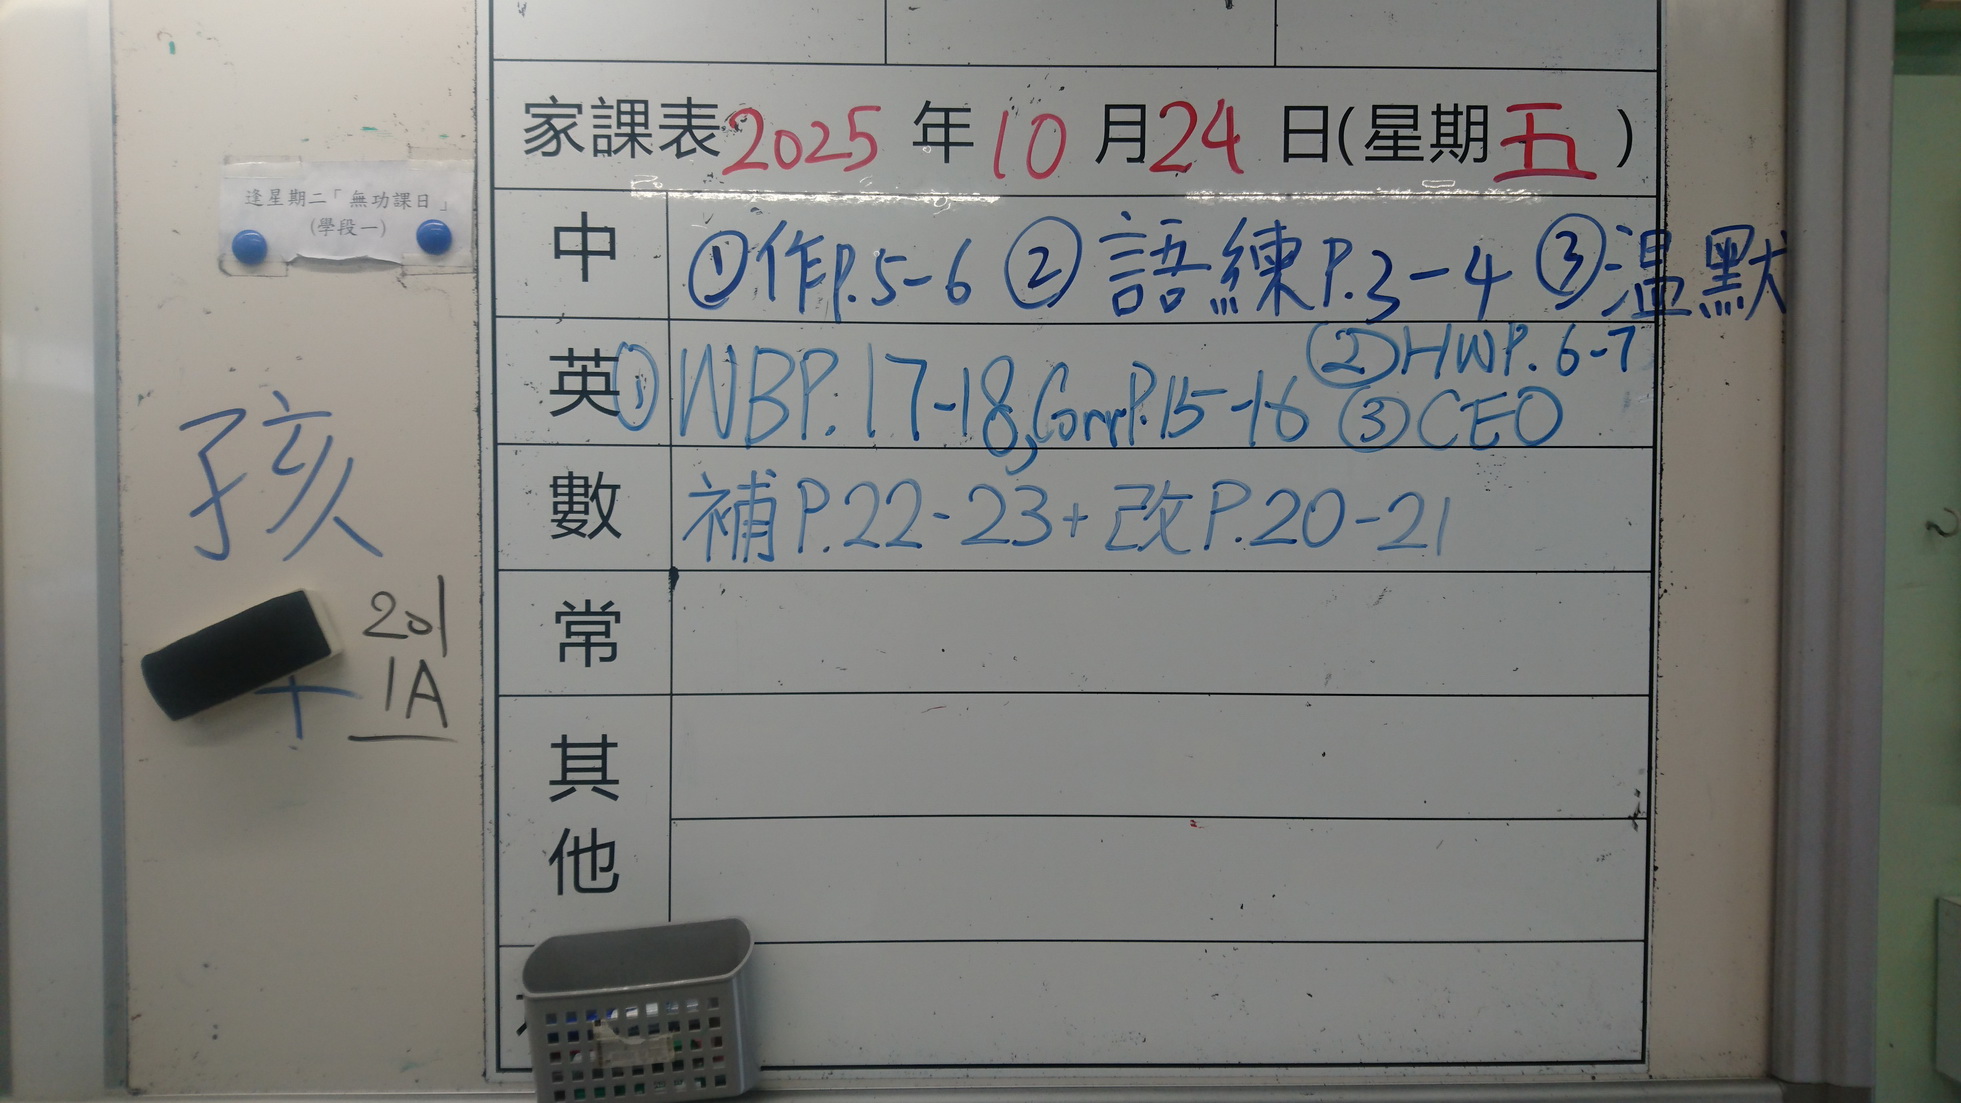 家課表2025年10月24日(星期五)
逢星期二「無功課日」
(學段一)
中 ①作P.5-6 ②語練P.3-4 ③温默
英 ①WBP.17-18, ②HWP.6-7
P.15-16 ③CEO
數 補P.22-23+改P.20-21
孩
常
201
1A
其
他